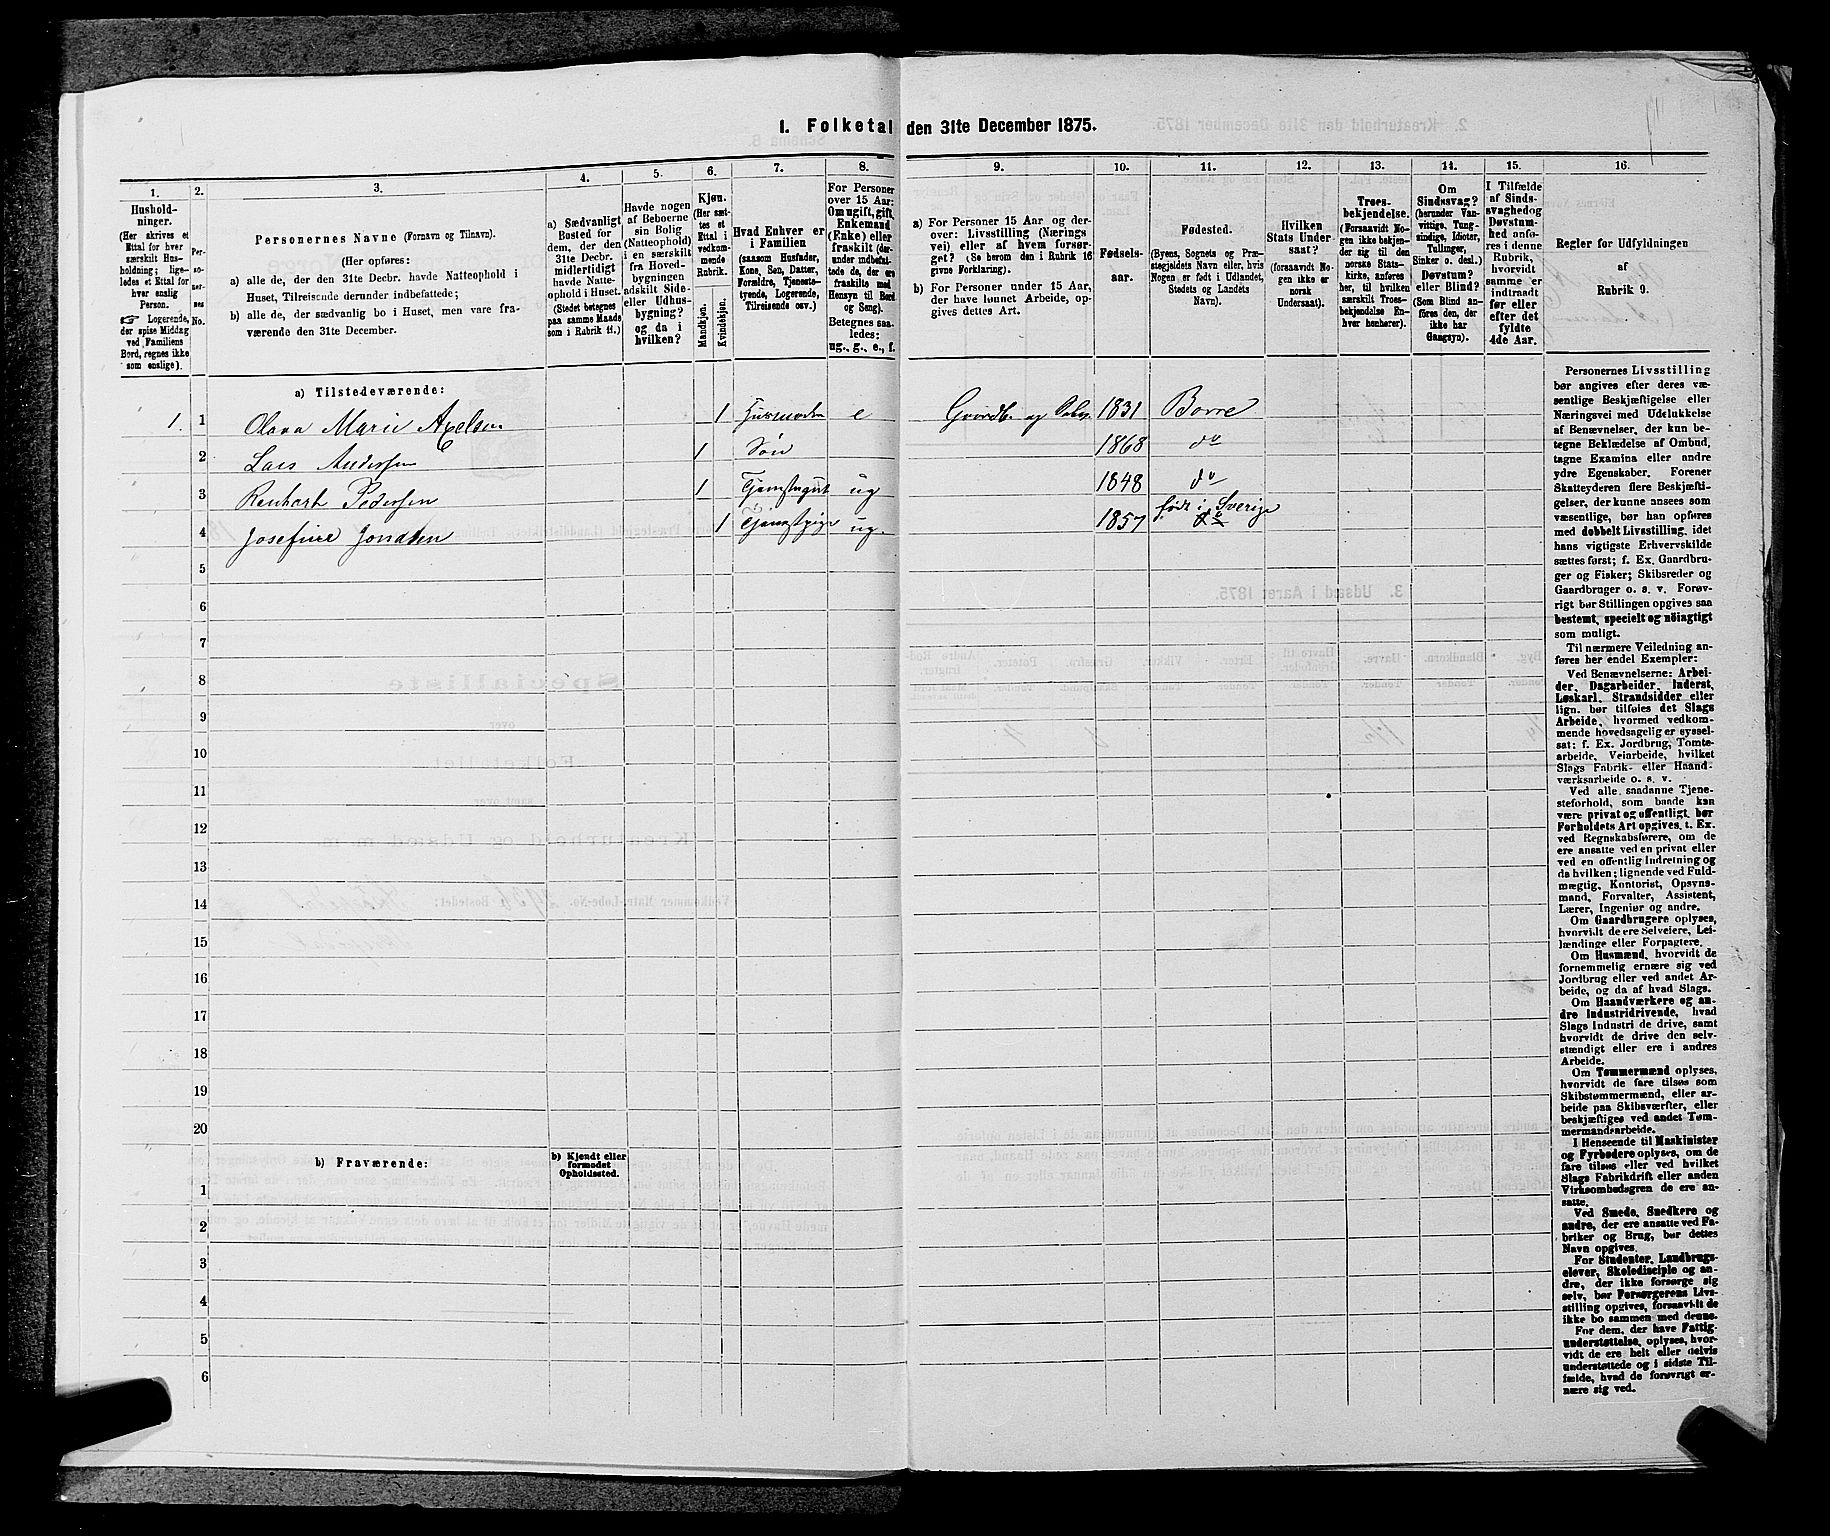 1. Folketal den 31te December 1875.
1.
2.
3.
4.
5.
6.
7.
8.
9.
10.
11.
12.
13.
14.
15.
16.
Hushold-
ninger.
(Her skrives et
Ettal for hver
særskilt Hus-
holdning; lige-
ledes et Ettal for
hver enslig
Person.
☞ Logerende,
der spise Middag
ved Familiens
Bord, regnes ikke
som enslige).
Per-
so-
ner-
nes
No.
Personernes Navne (Fornavn og Tilnavn).
(Her opføres:
a) alle de, der den 31te Decbr. havde Natteophold i
Huset, Tilreisende derunder indbefattede;
b) alle de, der sædvanlig bo i Huset, men vare fra-
værende den 31te December.
a) Sædvanligt
Bosted for
dem, der den
31te Decbr.
midlertidigt
havde Natte-
ophold i Huset.
(Stedet betegnes
paa samme Maade
som i Rubrik 11.)
Havde nogen
af Beboerne
sin Bolig
(Natteophold)
i en særskilt
fra Hoved-
bygningen
adskilt Side-
eller Udhus-
bygning?
og da i
hvilken?
Kjøn.
(Her sæt-
tes et
Ettal i
vedkom-
mende
Rubrik.
Mandkjøn.
Kvindekjøn.
Hvad Enhver er
i Familien
(saasom Husfader,
Kone, Søn, Datter,
Forældre, Tjeneste-
tyende, Logerende,
Tilreisende osv.)
For Personer
over 15 Aar:
Om ugift, gift,
Enkemand
(Enke) eller
fraskilt (der-
under indbefat-
tede de, der ere
fraskilte med
Hensyn til Bord
og Seng).
Betegnes saa-
ledes:
ug., g., e., f.
a) For Personer 15 Aar og der-
over: Livsstilling (Nærings
vei) eller af hvem forsør-
get? (Se borem den i Rubrik 16
givne Forklaring).
b) For Personer under 15 Aar,
der have lønnet Arbeide, op-
gives dettes Art.
Fødsels-
aar.
Fødested.
(Byens, Sognets og Præ-
stegjeldets Navn eller, hvis
Nogen er født i Udlandet,
Stedets og Landets
Navn).
Hvilken
Stats Under-
saat?
(forsaavidt No-
gen ikke er
norsk
Undersaat).
Troes-
bekjendelse.
(Forsaavidt No-
gen ikke bekjen-
der sig til den
norske Stats-
kirke, anføres
her, til hvilken
særskilt Troes-
bekjendelse En-
hver henhører).
Om
Sindssvag?
(herunder Van-
vittige, Tung-
sindige, Idioter,
Tullinger,
Sinker o. desl.)
Døvstum?
eller Blind?
(Som Blind an-
føres den, der
ikke har
Gangsyn).
I Tilfælde
af Sinds-
svaghed og
Døvstum-
hed anfø-
res i denne
Rubrik,
hvorvidt
samme er
indtraadt
før eller
efter det
fyldte
4de Aar.
Regler for Udfyldningen
af
Rubrik 9.
a) Tilstedeværende:
1. 1 Olava Marie Axelsen 1 Husmoder e Gaardb. og 1831 Borre
2 Lars Andersen 1 Søn 1868 do
3 Renhart Pedersen 1 Tjenstegut ug 1848 do
4 Josefine Jondsen 1 Tjenstpige ug. 1857 født i Sverige
5
6
7
8
9
10
11
12
13
14
15
16
17
18
19
20
b) Fraværende:
b) Kjendt eller
formodet
Opholdssted.
1
2
3
4
5
6
Personernes Livsstilling
bør angives efter deres væ-
sentlige Beskjæftigelse eller
Næringsvei med Udelukkelse
af Benævnelser, der kun be-
tegne Beklædelse af Ombud,
tagne Examina eller andre
ydre Egenskaber. Forener
Skatteyderen flere Beskjæfti-
gelser, der kunne ansees som
væsentlige, bør han opføres
med dobbelt Livsstilling, idet
hans vigtigste Erhvervskilde
sættes først; f. Ex. Gaardbru-
ger og Fisker; Skibsreder og
Gaardbruger o. s. v. Forøv-
rigt bør Stillingen opgives saa
bestemt, specielt og nøiagtigt
som muligt.
Til nærmere Veiledning an-
føres her endel Exempler:
Ved Benævnelserne: Arbei-
der, Dagarbeider, Inderst,
Løskarl, Strandsidder eller
lign. bør tilføies det Slags
Arbeide, hvormed vedkom-
mende hovedsagelig er syssel-
sat: f. Ex. Jordbrug, Tomte-
arbeide, Veiarbeide, hvilket
Slags Fabrik- eller Haand-
værksarbeide o. s. v.
Ved alle saadanne Tjene-
steforhold, som baade kan
være privat og offentligt, bør
Forholdets Art opgives, t. Ex.
ved Regnskabsførere, om de
ere ansatte ved en privat eller
ved en offentlig Indretning og
da hvilken; lignende ved Fuld-
mægtig, Kontorist, Opsyns-
mand, Forvalter, Assistent,
Lærer, Ingeniør og andre.
Om Gaardbrugere oplyses,
hvorvidt de ere Selveiere, Lei-
lændinge eller Forpagtere.
Om Husmænd, hvorvidt de
fornemmelig ernære sig ved
Jordbrug eller ved andet Ar-
beide, og da af hvad Slags.
Om Haandværkere og an-
dre Industridrivende, hvad
Slags Industri de drive, samt
hvorvidt de drive den selv-
stændigt eller ere i andres
Arbeide.
Om Tømmermænd oplyses,
hvorvidt de fare tilsøs som
Skibstømmermænd, eller ar-
beide paa Skibsværfter, eller
beskjæftiges ved andet Tøm-
mermandsarbeide.
I Henseende til Maskinister
og Fyrbødere oplyses, om de
fare tilsøs eller ved hvilket
Slags Fabrikdrift eller anden
Virksombedsgren de ere an-
satte.
Ved Smede, Snedkere og
andre, der ere ansatte ved Fa-
briker og Brug, bør dettes
Navn opgives.
For Studenter, Landbrugs-
elever, Skoledisciple og an-
dre, der ikke forsørge sig
selv, bør Forsørgerens Livs-
stilling opgives, forsaavidt de
ikke bo sammen med denne.
For dem, der have Fattig-
understøttelse, oplyses, hvor-
vidt de ere helt eller delvis
understøttede og i sidste Til-
fælde, hvad de forøvrigt er-
nære sig ved.